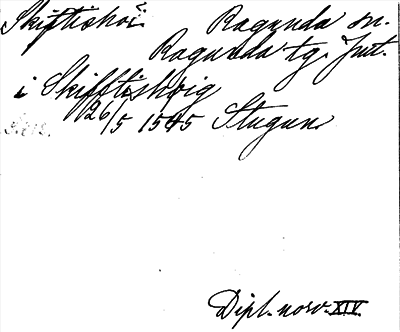 Skiftishöi. Ragunda sn.
Ragunda tg. Jmt.
i Skifftishöig
26/5 1545 Stugun
Dipl. norv. XIV.